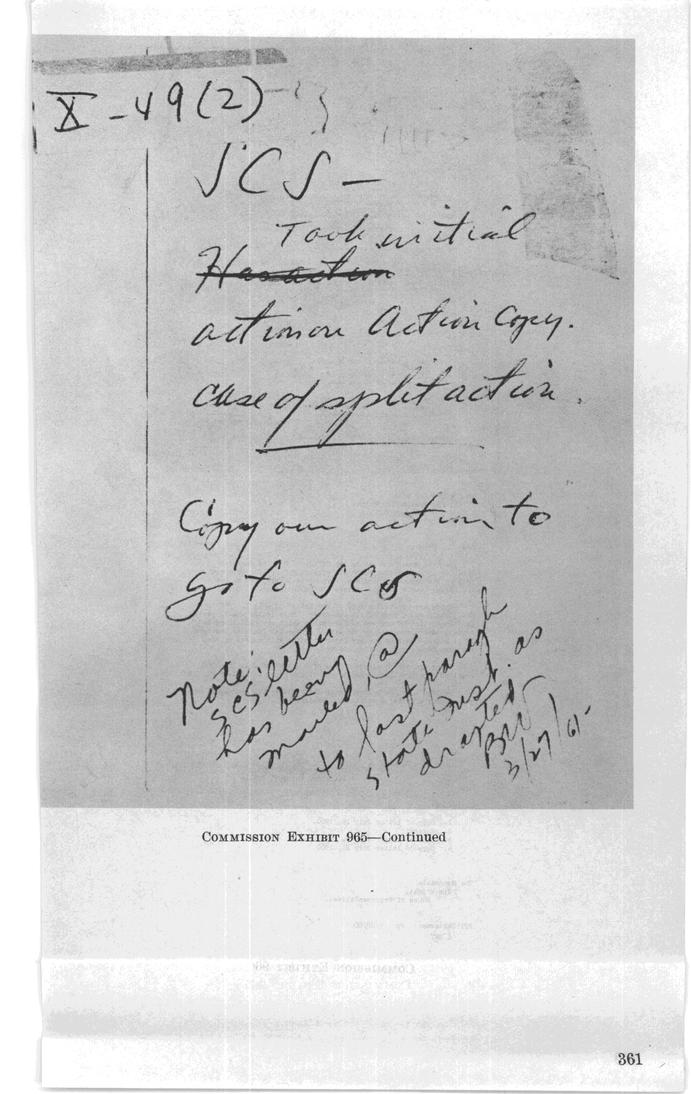 X-49(2)
SCS —
Took initial
Has action
action on Action Copy.
case of split action.
Copy our action to
go to SCS
Note:
SCS letter
has been
mailed @
to last paragh
State Inst. as
drafted
3/27/61
COMMISSION EXHIBIT 965—Continued
361